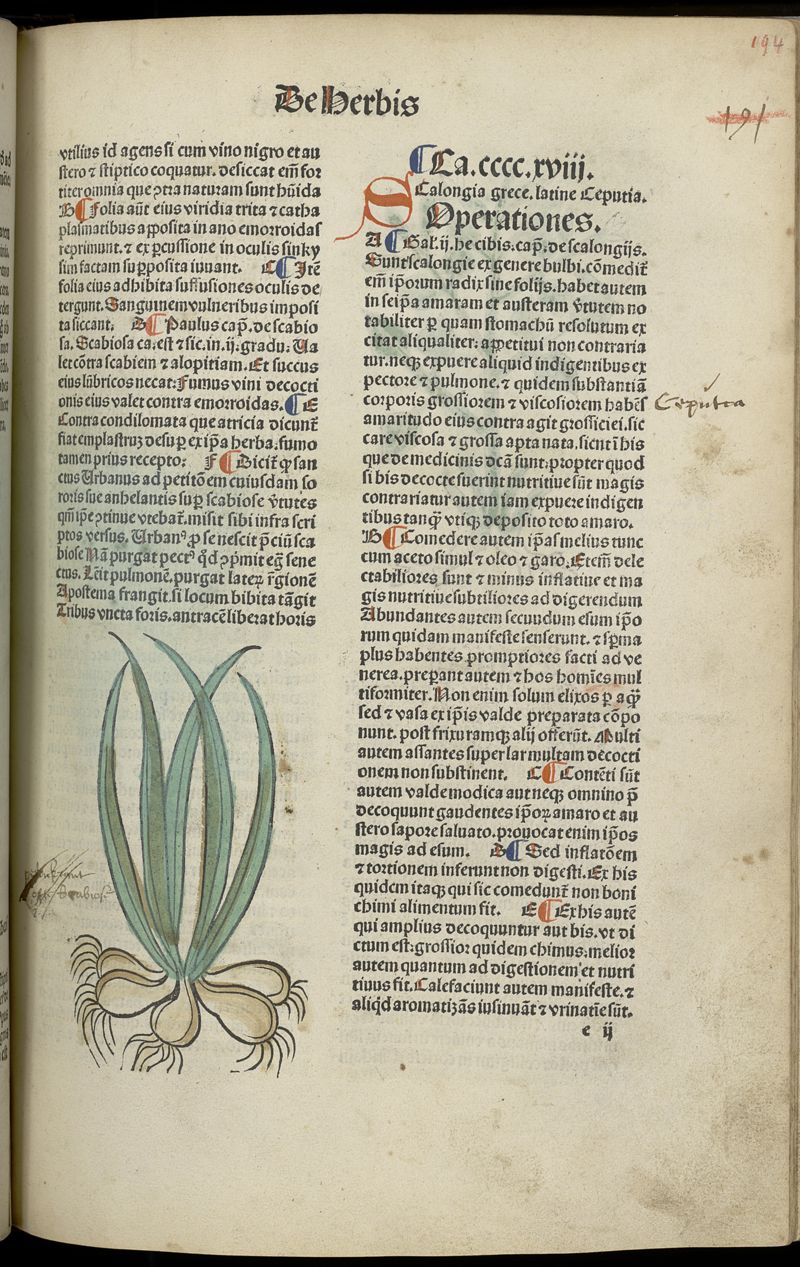 194
191
De Herbis
vtilius id agens si cum vino nigro et au
stero ⁊ stiptico coquatur. desiccat em̄ for
titer omnia que ꝯtra naturam sunt hūida
B ¶ Folia aūt eius viridia trita ⁊ catha
plasmatibus apposita in ano emorroidas
reprimunt. ⁊ ex percussione in oculis sinky
sim factam supposita iuuant. C ¶ Itē
folia eius adhibita suffusiones oculis de
tergunt. Sanguinem vulneribus imposi
ta siccant. D ¶ Paulus ca p̄. de scabio
sa. Scabiosa ca. est ⁊ sic. in .ij. gradu. Ua
let cōtra scabiem ⁊ alopitiam. Et succus
eius lūbricos necat. Fumus vini decocti
onis eius valet contra emorroidas. ¶ E
Contra condilomata que atricia dicunt̄
fiat emplastruꝫ desuper ex ip̄a herba. fumo
tamen prius recepto. F ¶ Dicit̄ ꝙ san
ctus Urbanus ad petitōem cuiusdam so
roris sue anhelantis suꝑ scabiose v̄tutes
qm̄ ipse ꝯtinue vtebat̄. misit sibi infra scri
ptos versus. Urbanꝰ ꝓ se nescit p̄ciū sca
biose Nā purgat pectꝰ qd̓ ꝯp̄mit egͣ sene
ctus. Leit pulmonē. purgat laterꝭ r̄gionē
Apostema frangit. si locum bibita tāgit
Tribus vncta foris. antracē liberat horis
¶ Ca. cccc. xviij.
Scalongia grece. latine Ceputia.
Operationes.
A ¶ Gal. ij. he cibis. ca p̄. de scalongijs.
Sunt scalongie ex genere bulbi. cōmedit̄
em̄ ip̄orum radix sine folijs. habet autem
in seip̄a amaram et austeram v̄tutem no
tabiliter ꝑ quam stomachū resolutum ex
citat aliqualiter. appetitui non contraria
tur. neqꝫ expuere aliquid indigentibus ex
pectore ⁊ pulmone. ⁊ quidem substantiā
corporis grossiorem ⁊ viscosiorem habēs
Ceputia
amaritudo eius contra agit grossiciei. sic
care viscosa ⁊ grossa apta nata. sicut ī his
que de medicinis dcā sunt. propter quod
si bis decocte fuerint nutritiue sūt magis
contrariatur autem iam expuere indigen
tibus tanqͣ vtiqꝫ deposito toto amaro.
B ¶ Comedere autem ip̄as melius tunc
cum aceto simul ⁊ oleo ⁊ garo. Etem̄ dele
ctabiliores sunt ⁊ minus inflatiue et ma
gis nutritiue subtiliores ad digerendum
Abundantes autem secundum esum ip̄o
rum quidam manifeste senserunt. ⁊ sp̄ma
plus habentes promptiores facti ad ve
nerea. preparant autem ⁊ hos homīes mul
tiformiter. Non enim solum elixos ꝑ aqͣ
sed ⁊ vasa ex ip̄is valde preparata cōpo
nunt. post frixuramqꝫ alij offerūt. Multi
autem assantes super lar multam decocti
onem non substinent. C ¶ Contēti sūt
autem valde modica aut neqꝫ omnino p̄
decoquunt gaudentes ip̄orꝫ amaro et au
stero sapore saluato. prouocat enim ip̄os
magis ad esum. D ¶ Sed inflatōem
⁊ tortionem inferunt non digesti. Ex his
quidem itaqꝫ qui sic comedunt̄ non boni
chimi alimentum fit. E ¶ Ex his autē
qui amplius decoquuntur aut bis. vt di
ctum est. grossior quidem chimus. melior
autem quantum ad digestionem et nutri
tiuus fit. Calefaciunt autem manifeste. ⁊
aliqͥd aromatizās insinuāt ⁊ vrinatie sūt.
e ij